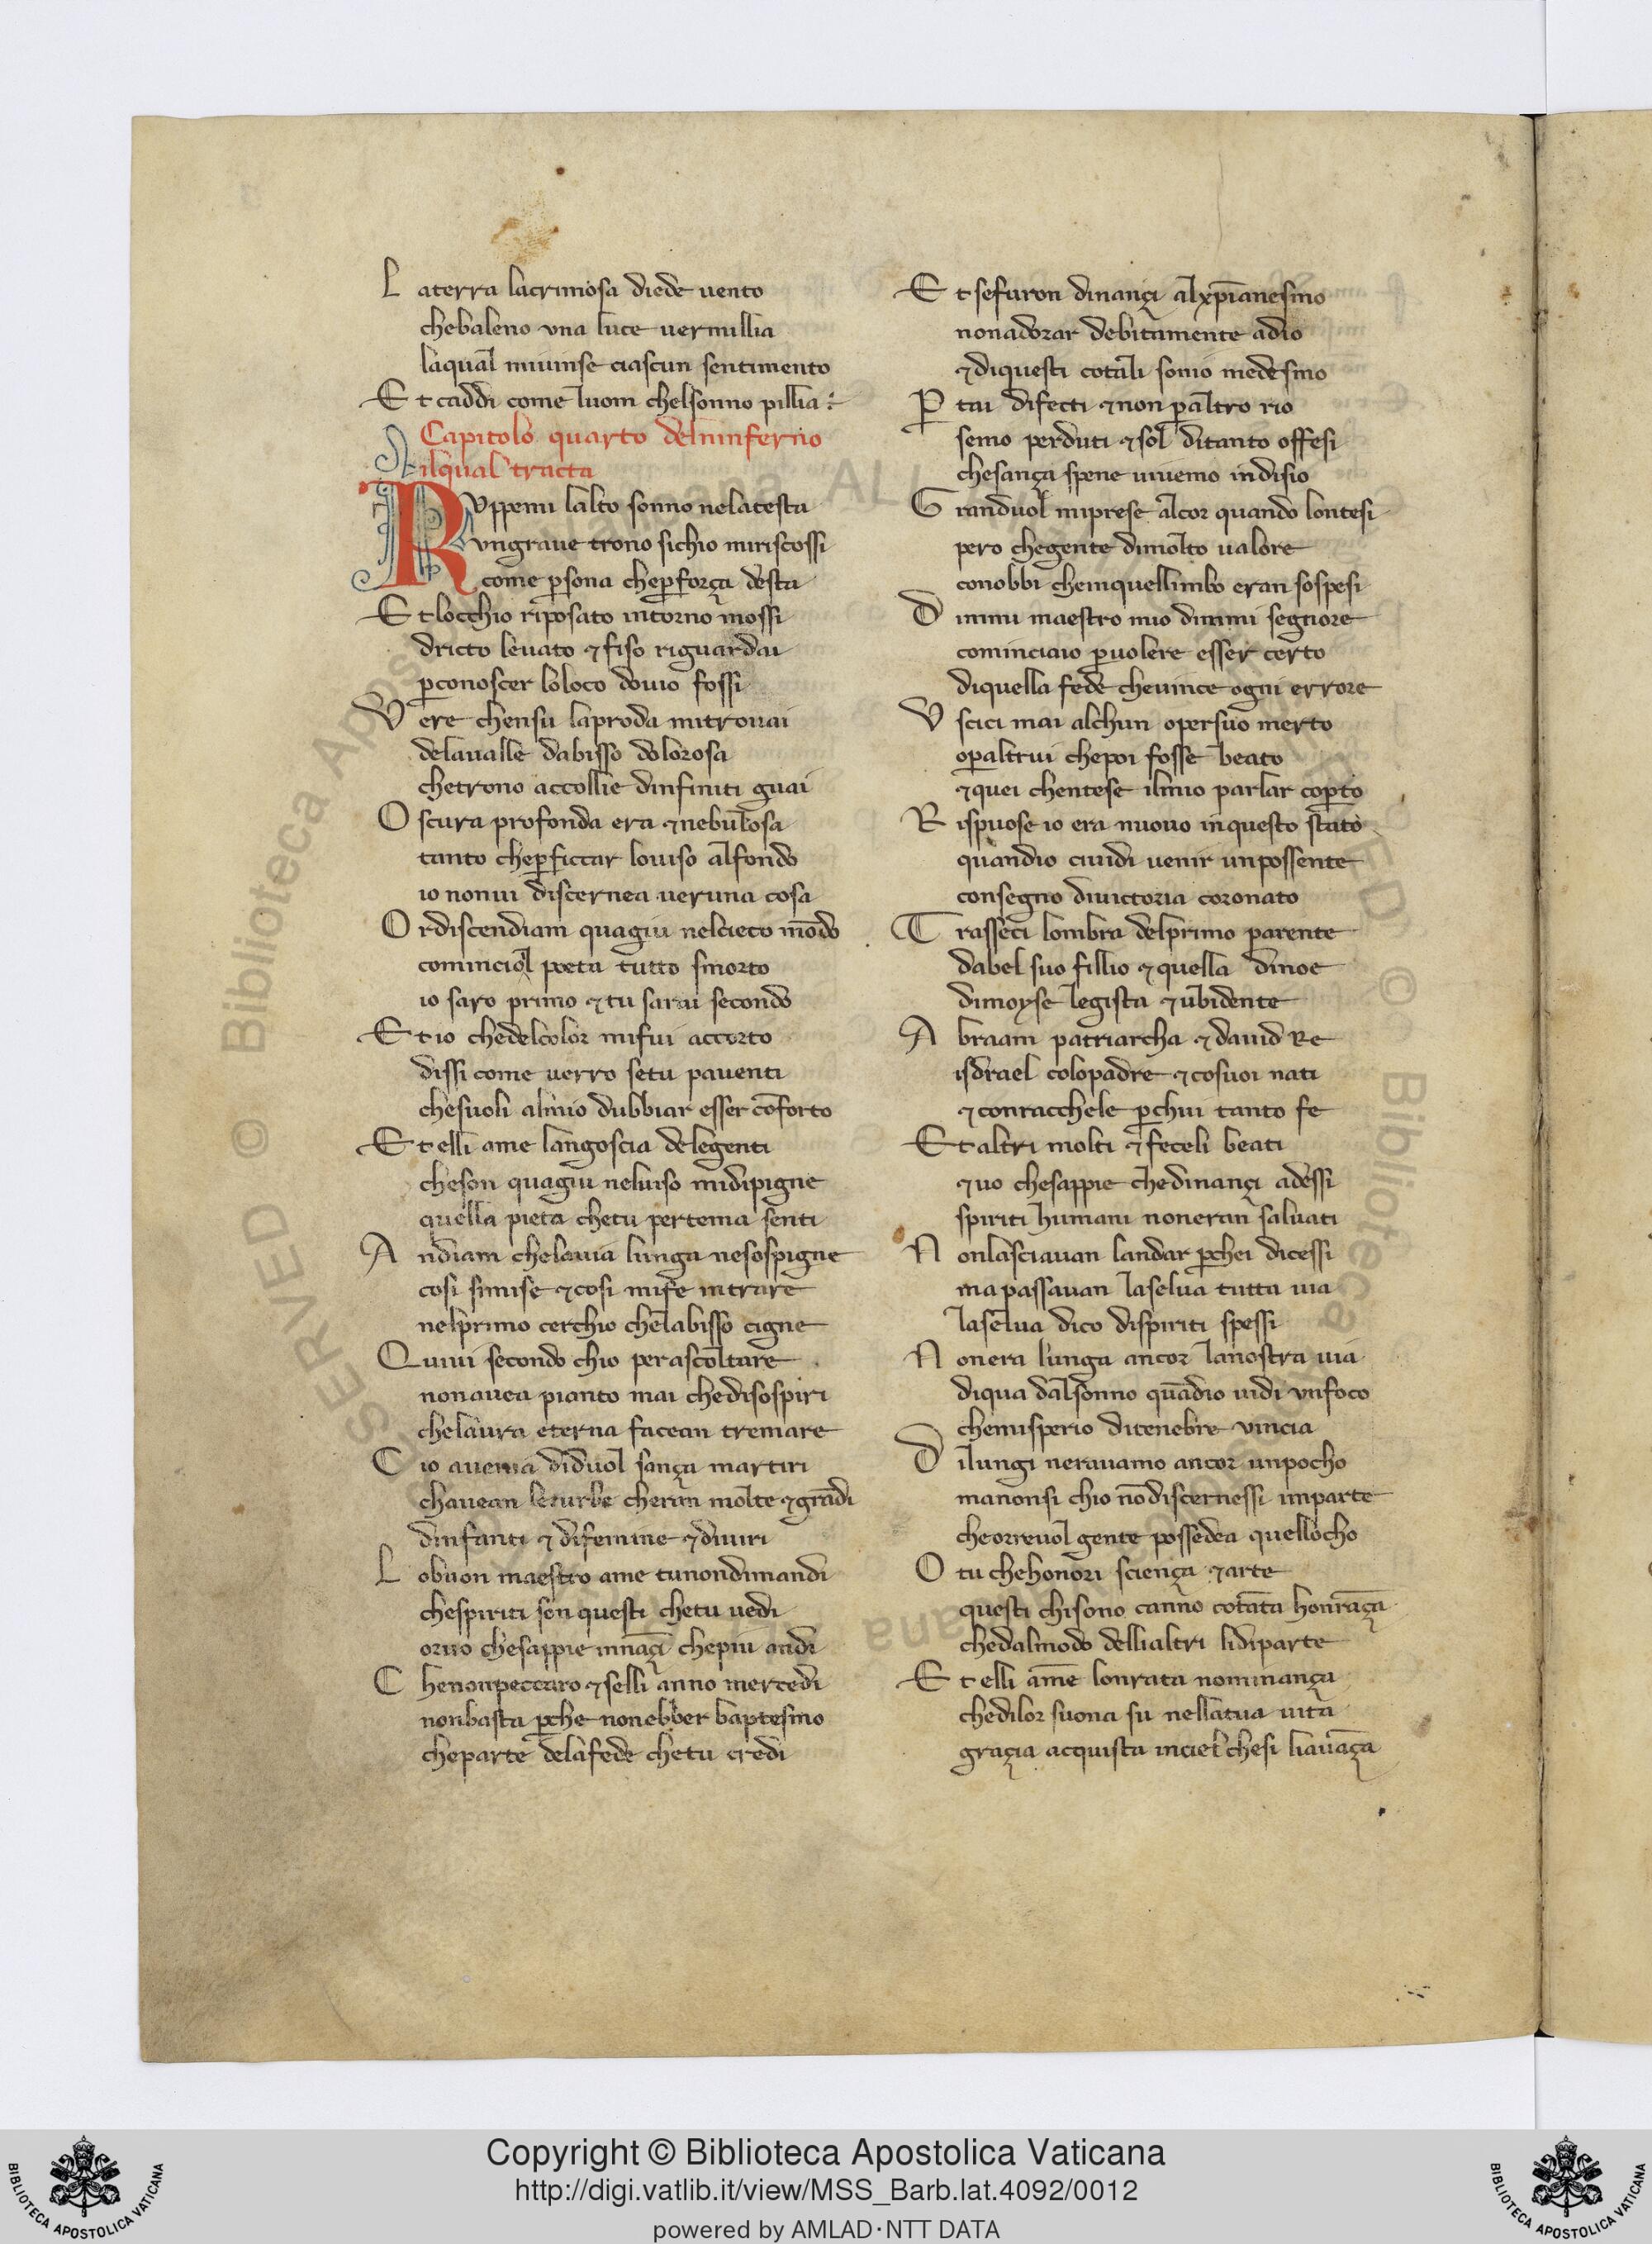 L aterra lacrimosa diede uento
chebaleno vna luce uermillia
laqual miuinse ciascun sentimento
E t caddi come luom chelsonno pillia
Capitolo quarto delninferno
ilqual tracta
RVppemi lalto sonno nelatesta
vngraue trono sichio miriscossi
come ꝑsona cheꝑforça desta
E tlocchio riposato intorno mossi
dricto leuato ⁊ fiso riguardai
ꝑconoscer loloco douio fossi
V ere chensu laproda mitrouai
delaualle dabisso dolorosa
chetrono accollie dinfiniti guai
O scura profonda era ⁊ nebulosa
tanto cheꝑficcar louiso alfondo
io nonui discernea ueruna cosa
O rdiscendiam quagiu nelcieco mōdo
cominciol poeta tutto smorto
io saro primo ⁊ tu sarai secondo
E t io chedelcolor mifui accorto
dissi come uerro setu pauenti
chesuoli almio dubbiar esser cōforto
E t elli ame langoscia delegenti
cheson quagiu neluiso midipigne
quella pieta chetu pertema senti
A ndiam chelauia lunga nesospigne
cosi simise ⁊ cosi mife intrare
nelprimo cerchio chelabisso cigne
Q uiui secondo chio perascoltare
nonauea pianto mai chedisospiri
chelaura eterna facean tremare
C io auenia diduol sança martiri
chauean leturbe cheran molte ⁊ grādi
dinfanti ⁊ difemine ⁊ diuiri
L obuon maestro ame tunondimandi
chespiriti son questi chetu uedi
oruo chesappie innāçi chepiu andi
C henonpeccaro ⁊ selli anno mercedi
nonbasta ꝑche nonebber baptesmo
cheparte delafede chetu credi
E t sefuron dinançi alxp̄ianesmo
nonadorar debitamente adio
⁊ diquesti cotali sonio medesmo
P tai difecti ⁊ non ꝑaltro rio
semo perduti ⁊ sol ditanto offesi
chesança spene uiuemo indisio
G randuol miprese alcor quando lontesi
pero chegente dimolto ualore
conobbi chemquellimbo eran sospesi
D immi maestro mio dimmi segnore
cominciaio ꝑuolere esser certo
diquella fede cheuince ogni errore
V scici mai alchun opersuo merto
oꝑaltrui chepoi fosse beato
⁊ quei chentese ilmio parlar coꝑto
R ispuose io era nuouo inquesto stato
quandio ciuidi uenir unpossente
consegno diuictoria coronato
T rasseci lombra delprimo parente
dabel suo fillio ⁊ quella dinoe
dimoyse legista ⁊ ubidente
A braam patriarcha ⁊ dauid Re
isdrael colopadre ⁊ cosuoi nati
⁊ conracchele ꝑchui tanto fe
E t altri molti ⁊ feceli beati
⁊ uo chesappie chedinançi adessi
spiriti humani noneran saluati
N onlasciauan landar ꝑchei dicessi
ma passauan laselua tutta uia
laselua dico dispiriti spessi
N onera lunga ancor lanostra uia
diqua dalsonno quādio uidi vnfoco
chemisperio ditenebre vincia
D ilungi nerauamo ancor unpocho
manonsi chio nōdiscernessi imparte
cheorreuol gente possedea quellocho
O tu chehonori sciença ⁊ arte
questi chisono canno cotāta honrāça
chedalmodo dellialtri lidiparte
E t elli ame lonrata nominança
chedilor suona su nellatua uita
graçia acquista inciel chesi liauāça
Copyright © Biblioteca Apostolica Vaticana
http://digi.vatlib.it/view/MSS_Barb.lat.4092/0012
powered by AMLAD·NTT DATA
BIBLIOTECA APOSTOLICA VATICANA
BIBLIOTECA APOSTOLICA VATICANA